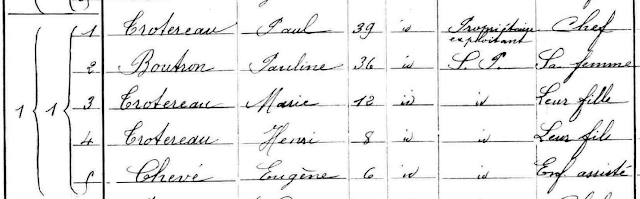 1 1 1 Trotereau Paul 39 id Propriétaire exploitant Chef
2 Boutron Pauline 36 id S. P. Sa femme
3 Trotereau Marie 12 id id Leur fille
4 Trotereau Henri 8 id id Leur fils
5 Chevé Eugène 6 id id Enf assisté